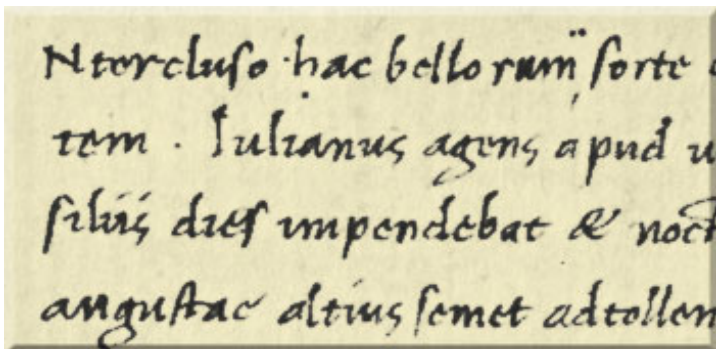 Ntercluso hac bellorum sorte
tem . Iulianus agens apud
siliis dies impendebat & noct
angustae altius semet adtollen